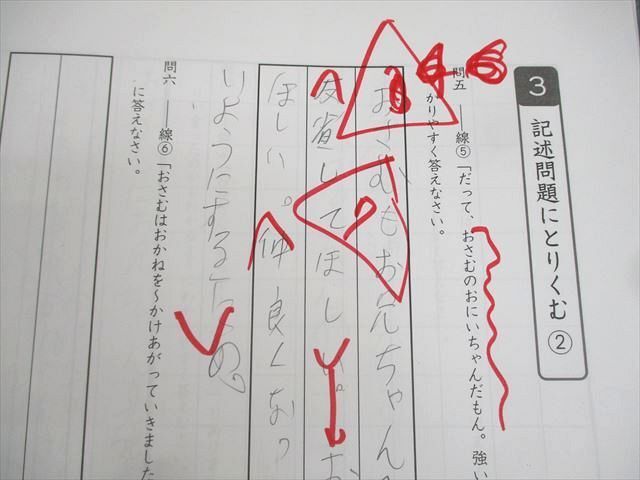 3 記述問題にとりくむ②
問五 ――線⑤「だって、おさむのおにいちゃんだもん。強い
かりやすく答えなさい。
おさむもお兄ちゃん
反省してほしい。お
ほしい。仲良くなっ
いようにするため。
問六 ――線⑥「おさむはおかねを〜かけあがっていきました
に答えなさい。